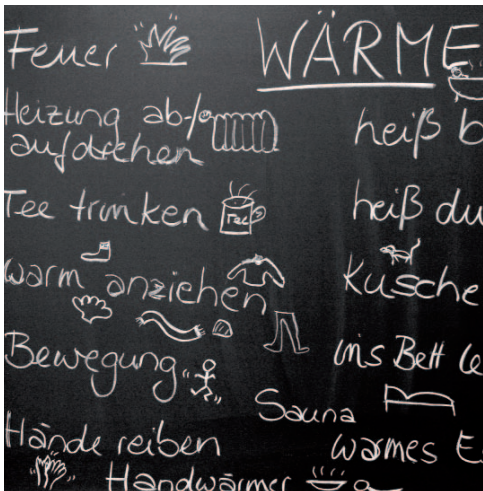 Feuer
WÄRME
Heizung ab-/
aufdrehen
heiß b
Tee trinken
Tee
heiß du
warm anziehen
Kusche
Bewegung
ins Bett le
Sauna
Hände reiben
warmes E
Handwärmer